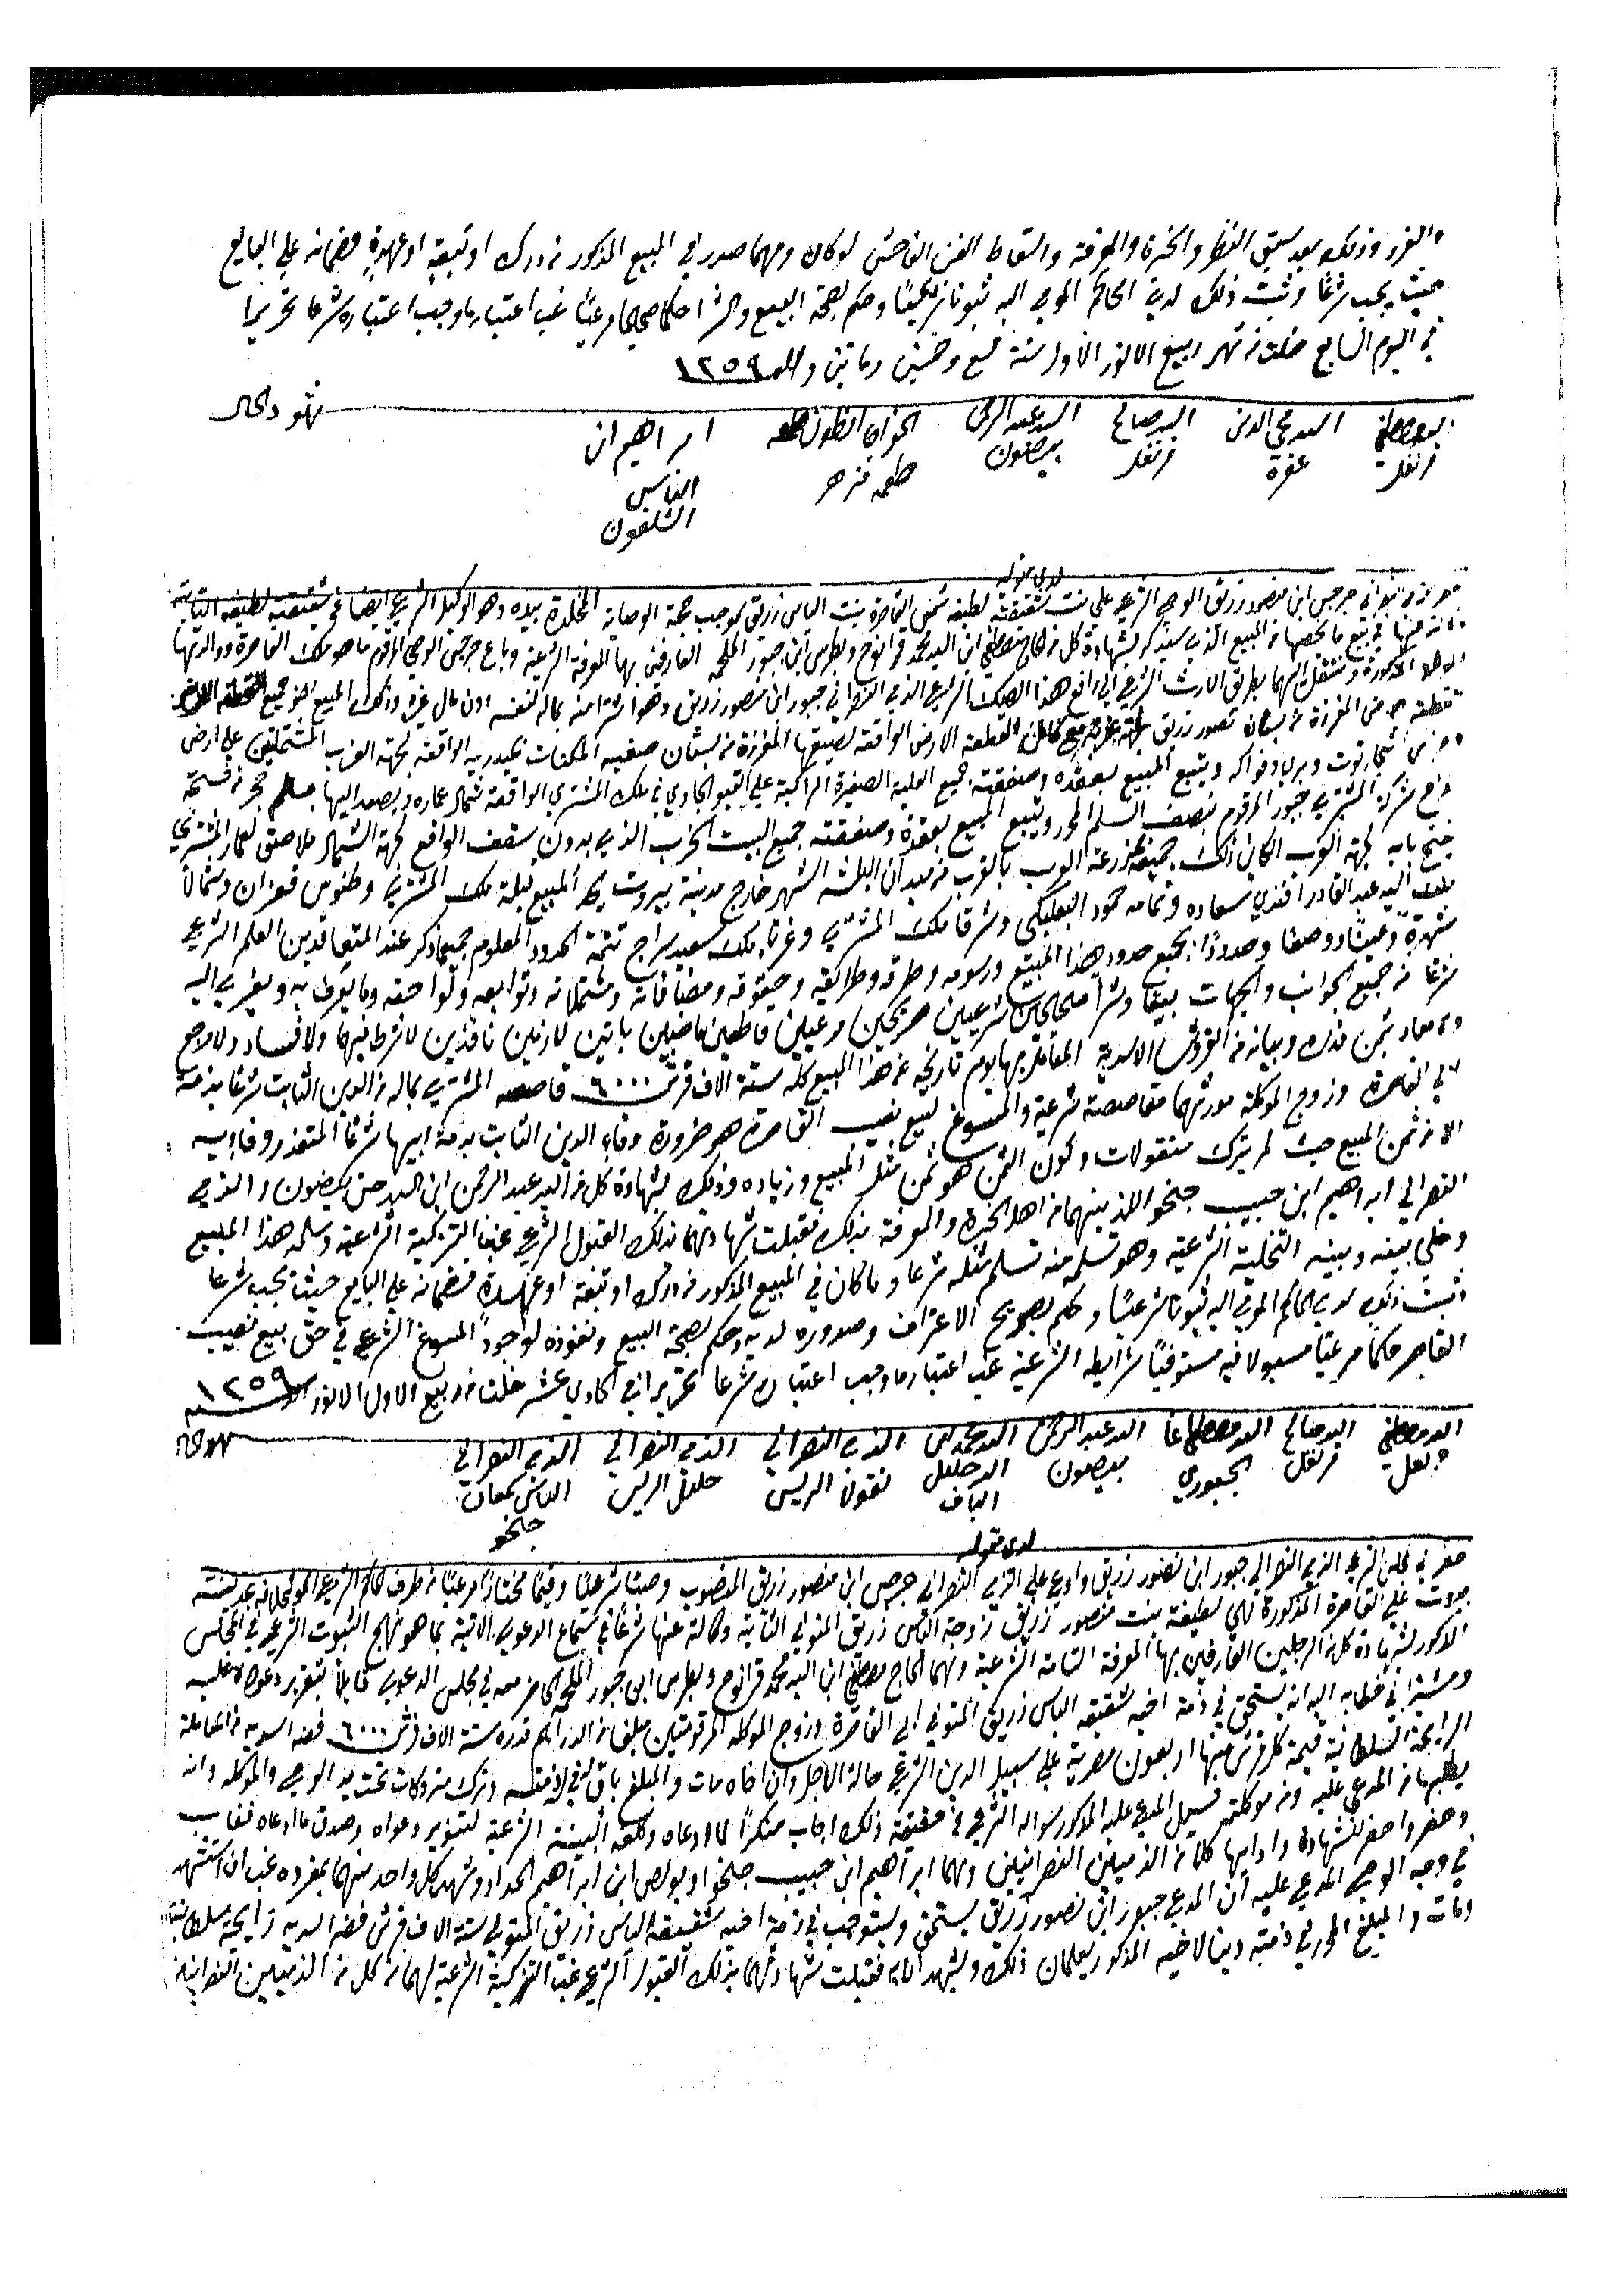 والغرر وذلك بعد سبق النظر والخبرة والمعرفة واسقاط الغبن الفاحش لو كان ومهما صدر في المبيع المذكور من درك او تبعة او عهدة فضمانه على البايع
حيث يجب شرعا وثبت ذلك لدى الحاكم المومى اليه ثبوتا شرعيا وحكم بصحة البيع والشرا حكما صحيحا مرعيا غب اعتبار ما وجب اعتباره شرعا تحريرا
في اليوم السابع خلت من شهر ربيع الانور الاول سنة تسع وخمسين وماتين والف ١٢٥٩
شهود الحال
السيد مصطفى قرنفل
السيد محي الدين غزة
السيد صالح قرنفل
السيد عبد الرحمن بيضون
الخواجا انطون طعمه
ابراهيم ابن الياس الشلفون
لدى مولانا
جرجس ابن منصور زريق الوصي الشرعي على بنت شقيقه لطيفه القاصرة بنت الياس زريق بموجب حجة الوصاية المخلدة بيده وهو الوكيل الشرعي ايضا عن شقيقته لطيفه الثابتة
في بيع ما يخصها من المبيع الذي سيذكر بشهادة كل من الحاج مصطفى ابن السيد محمد قرانوح وبطرس ابن جبور الملحمه العارفين بها المعرفة الشرعية وباع جرجس الوصي المرقوم ما هو ملك القاصرة ووالدتها
المذكورة ومنتقل اليهما بطريق الارث الشرعي الى رافع هذا الصك الشرعي الذمي النصراني جبور ابن منصور زريق وهو اشترا منه بماله لنفسه دون مال غيره وذلك المبيع هو جميع القطعة
المفرزة من بستان منصور زريق القطعة الارض الواقعة لصيقها المفرزة من بستان الواقعة لجهة الغرب المشتملين على ارض
اشجار توت وبري وفواكه ويتبع المبيع بعقده وصفقته جميع العلية الصغيرة الراكبة على القبو الجاري في ملك المشتري الواقعة شمال عماره ويصعد اليها بسلم حجر من فسحة
شركة المشتري جبور المرقوم بنصف السلم المحرر ويتبع المبيع بعقده وصفقته جميع البيت الخرب الذي بدون سقف الواقع لجهة الشمال ملاصق لعمار المشتري
بابه لجهة الغرب الكاين ذلك جميعه بمزرعة العرب بالقرب من ميدان البلشه الشهير خارج مدينة بيروت يحد المبيع قبلة ملك المشتري وطنوس وشمالا
ملك السيد عبد القادر افندي سعاده وتمامه حمود البعلبكي وشرقا ملك المشتري وغربا ملك سعيد سراج تتمة الحدود المعلوم جميع ما ذكر عند المتعاقدين العلم الشرعي
شهرة وعينا ووصفا وحدودا بجميع حدود هذا المبيع ورسومه وطرقه وطرايقه وحقوقه ومضافاته ومشتملاته وتوابعه ولواحقه وما يعرف به ويعزى اليه
شرعا من جميع الجوانب والجهات بيعا وشرا صحيحين شرعيين صريحين مرعيين قاطعين ماضيين باتين لازمين نافذين لا شرط فيهما ولا فساد ولا رجوع
ولا معاد بثمن قدره وبيانه من القروش الاسدية المتعامل بها يوم تاريخه عن هذا المبيع كله ستة الاف قرش ٦٠٠٠ قاصصه المشتري بماله من الدين الثابت شرعا بذمة
ابي القاصرة وزوج الموكلة مورثهما مقاصصة شرعية والمسوغ لبيع نصيب القاصرة هو ضرورة وفاء الدين الثابت بذمة ابيها شرعا المتعذر وفاؤه
الا من ثمن المبيع حيث لم يترك منقولات وكون الثمن هو ثمن مثل المبيع وزياده وذلك بشهادة كل من السيد عبد الرحمن ابن السيد حسن بيضون والذمي
النصراني ابراهيم ابن حبيب جلخو اللذين هما من اهل الخبرة والمعرفة بذلك فقبلت شهادتهما بذلك القبول الشرعي غب التزكية الشرعية وسلمه هذا المبيع
وخلى بينه وبينه التخلية الشرعية وهو تسلمه منه تسلم مثله شرعا وما كان في المبيع المذكور من درك او تبعة او عهدة فضمانه على البايع حيث يجب شرعا
وثبت ذلك لدى الحاكم المومى اليه ثبوتا شرعيا وحكم بصريح الاعتراف وصدوره لديه وحكم بصحة البيع ونفوذه لوجود المسوغ الشرعي في حق بيع نصيب
القاصر حكما مرعيا مسبولا فيه مستوفيا شرايطه الشرعية غب اعتبار ما وجب اعتباره شرعا تحريرا في الحادي عشر خلت من ربيع الاول الانور سنة ١٢٥٩
شهود الحال
السيد مصطفى قرنفل
السيد صالح قرنفل
السيد مصطفى اغا الجبوري
السيد عبد الرحمن بيضون
السيد محمد ابن السيد خليل الباف
الذمي النصراني نقولا الريس
الذمي النصراني خليل الريس
الذمي النصراني الياس كنعان جلخو
لدى مولانا
حضر في مجلس الشرع الذمي النصراني جبور ابن منصور زريق وادعى على الذمي النصراني جرجس ابن منصور زريق المنصوب وصيا شرعيا وقيما مختارا مرعيا من طرف الحاكم الشرعي بمدينة
بيروت على القاصرة المذكورة وعلى لطيفة بنت منصور زريق زوجة الياس زريق المتوفي الثابته وكالته عنها شرعا في سماع الدعوى الاتية بما هو نهج الثبوت الشرعي في المجلس
المذكور بشهادة كل من الرجلين العارفين بها المعرفة التامة الشرعية وهما الحاج مصطفى ابن السيد محمد قرانوح وبطرس ابن جبور الملحمه الحاضر معه في مجلس الدعوى قايلا بتقرير دعواه عليه
ومشيرا في خطابه اليه انه يستحق في ذمة اخيه شقيقه الياس زريق المتوفي ابي القاصرة وزوج الموكله المرقومتين مبلغا من الدراهم قدره ستة الاف قرش ٦٠٠٠ فضه اسديه من المعاملة
الرايجة السلطانية قيمة كل قرش منها اربعون مصرية على سبيل الدين الشرعي حالة الاجل وان اخاه مات والمبلغ باق له في ذمته وترك متروكات تحت يد الوصي والموكله وانه
يطلبها من المدعى عليه ومن موكلته فسيل المدعى عليه المذكور سواله الشرعي عن حقيقة ذلك اجاب منكرا لما ادعاه وكلفه البينة الشرعية لتنوير دعواه وصدق ما ادعاه فغاب
وحضر واحضر للشهادة وادايها كلا من الذميين النصرانيين وهما ابراهيم ابن حبيب جلخو وبولص ابن ابراهيم الحداد وشهد كل واحد منهما بمفرده غب ان استشهد
في وجه الوصي المدعى عليه ان المدعي جبور ابن منصور زريق يستحق ويستوجب في ذمة اخيه شقيقه الياس زريق المتوفي ستة الاف قرش فضه اسديه رايجة سلطانية
ومات والمبلغ المحرر في ذمته دينا لاخيه المذكور يعلمان ذلك ويشهدان به فقبلت شهادتهما بذلك القبول الشرعي غب التزكية الشرعية لهما من كل من الذميين النصرانيين